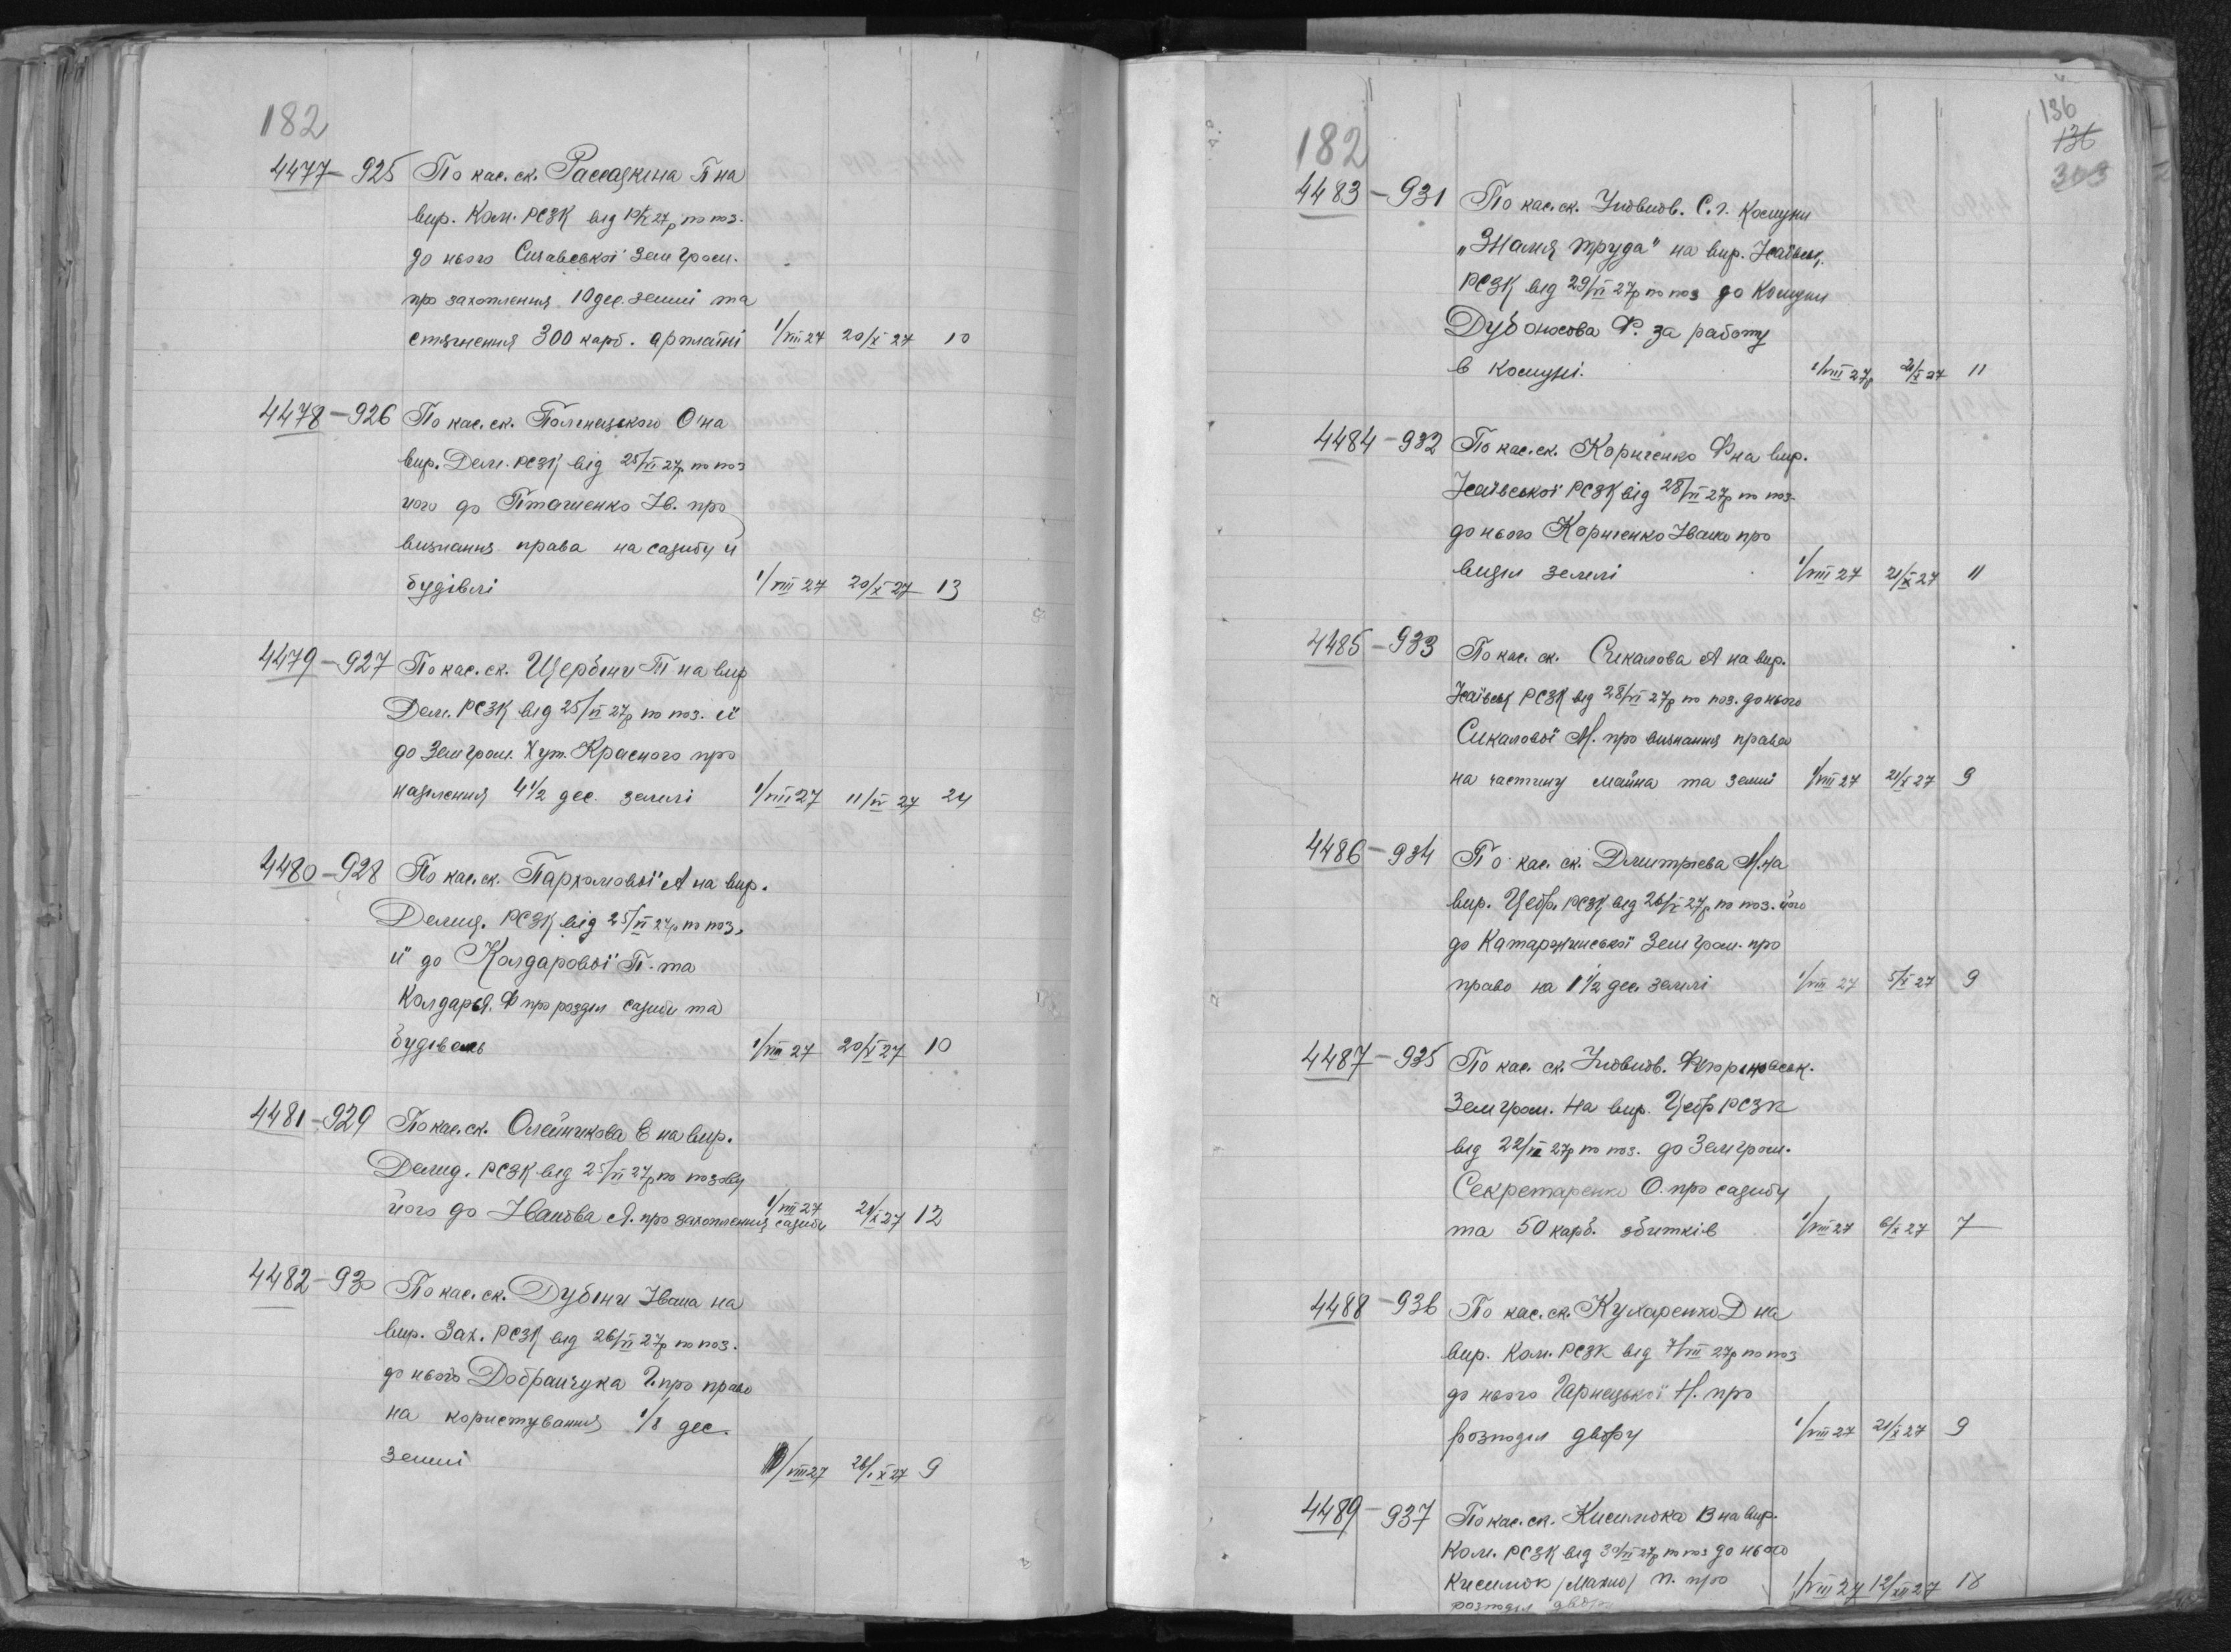 182
4477-925 По кас. ск. Рассадкіна П на
вир. Ком. РСЗК від 27р по поз.
до нього Зем Гром.
про захоплення 10 дес. землі та
стягнення 300 карб. орплатні 1/VIII 27 20/X 27 10
4478-926 По кас. ск. О на
вир. Дем. РСЗК від 25/VI 27р. по поз
його до Пташенко Ів. про
визнання права на садибу й
будівлі 1/VIII 27 20/X 27 13
4479-927 По кас. ск. Щербіни Т на вир
Дем. РСЗК від 25/VI 27р по поз. її
до Зем гром. Хут. Красного про
наділення 4 1/2 дес. землі 1/VIII 27 11/IV 27 24
4480-928 По кас. ск. Пархомової А на вир.
Демид. РСЗК від 25/VI 27р по поз.
її до Колдарової П. та
Колдарь Я. Ф про розділ садиби та
будівель 1/VIII 27 20/X 27 10
4481-929 По кас. ск. Олейникова Е на вир.
Демид. РСЗК від 25/VI 27р по позову
його до Іванова Я. про захоплення садиби 1/VIII 27 21/X 27 12
4482-930 По кас. ск. Дубіни Івана на
вир. Зах. РСЗК від 26/VI 27р по поз.
до нього Добранчука Г. про право
на користування 1/8 дес.
землі 1/VIII 27 26/X 27 9
136
136
303
182
4483-931 По кас. ск. Уповнов. С.г. Комуни
„Знамя труда" на вир. Ісаївськ.
РСЗК від 29/VI 27р по поз до Комуни
Дубоносова Ф. за работу
в комуні. 1/VIII 27р 21/X 27 11
4484-932 По кас. ск. Корнієнко Ф на вир.
Ісаївської РСЗК від 28/VI 27р по поз.
до нього Корнієнко Івана про
виділ землі 1/VIII 27 21/X 27 11
4485-933 По кас. ск. Сикалова А на вир.
Ісаївськ РСЗК від 28/VI 27р по поз. до нього
Сикалової М. про визнання права
на частину майна та землі 1/VIII 27 21/X 27 9
4486-934 По кас. ск. Дмитрієва М. на
вир. Цебр. РСЗК від 26/V 27р по поз. його
до Катаржинської Зем Гром. про
право на 1 1/2 дес. землі 1/VIII 27 5/X 27 9
4487-935 По кас. ск. Уповнов.
Зем гром. на вир. Цебр РСЗК
від 22/VI 27р по поз. до Зем гром.
Секретаренко О. про садибу
та 50 карб. збитків 1/VIII 27 6/X 27 7
4488-936 По кас. ск. Кухаренко Д на
вир. Ком. РСЗК від 7/VII 27р по поз
до нього Гарнецької Н. про
розподіл двору 1/VIII 27 21/X 27 9
4489-937 По кас. ск. Кисилюка В на вир.
Ком. РСЗК від 30/VI 27р по поз до нього
Кисилюк /Махно/ П. про 1/VIII 27 12/XII 27 18
розподіл двору